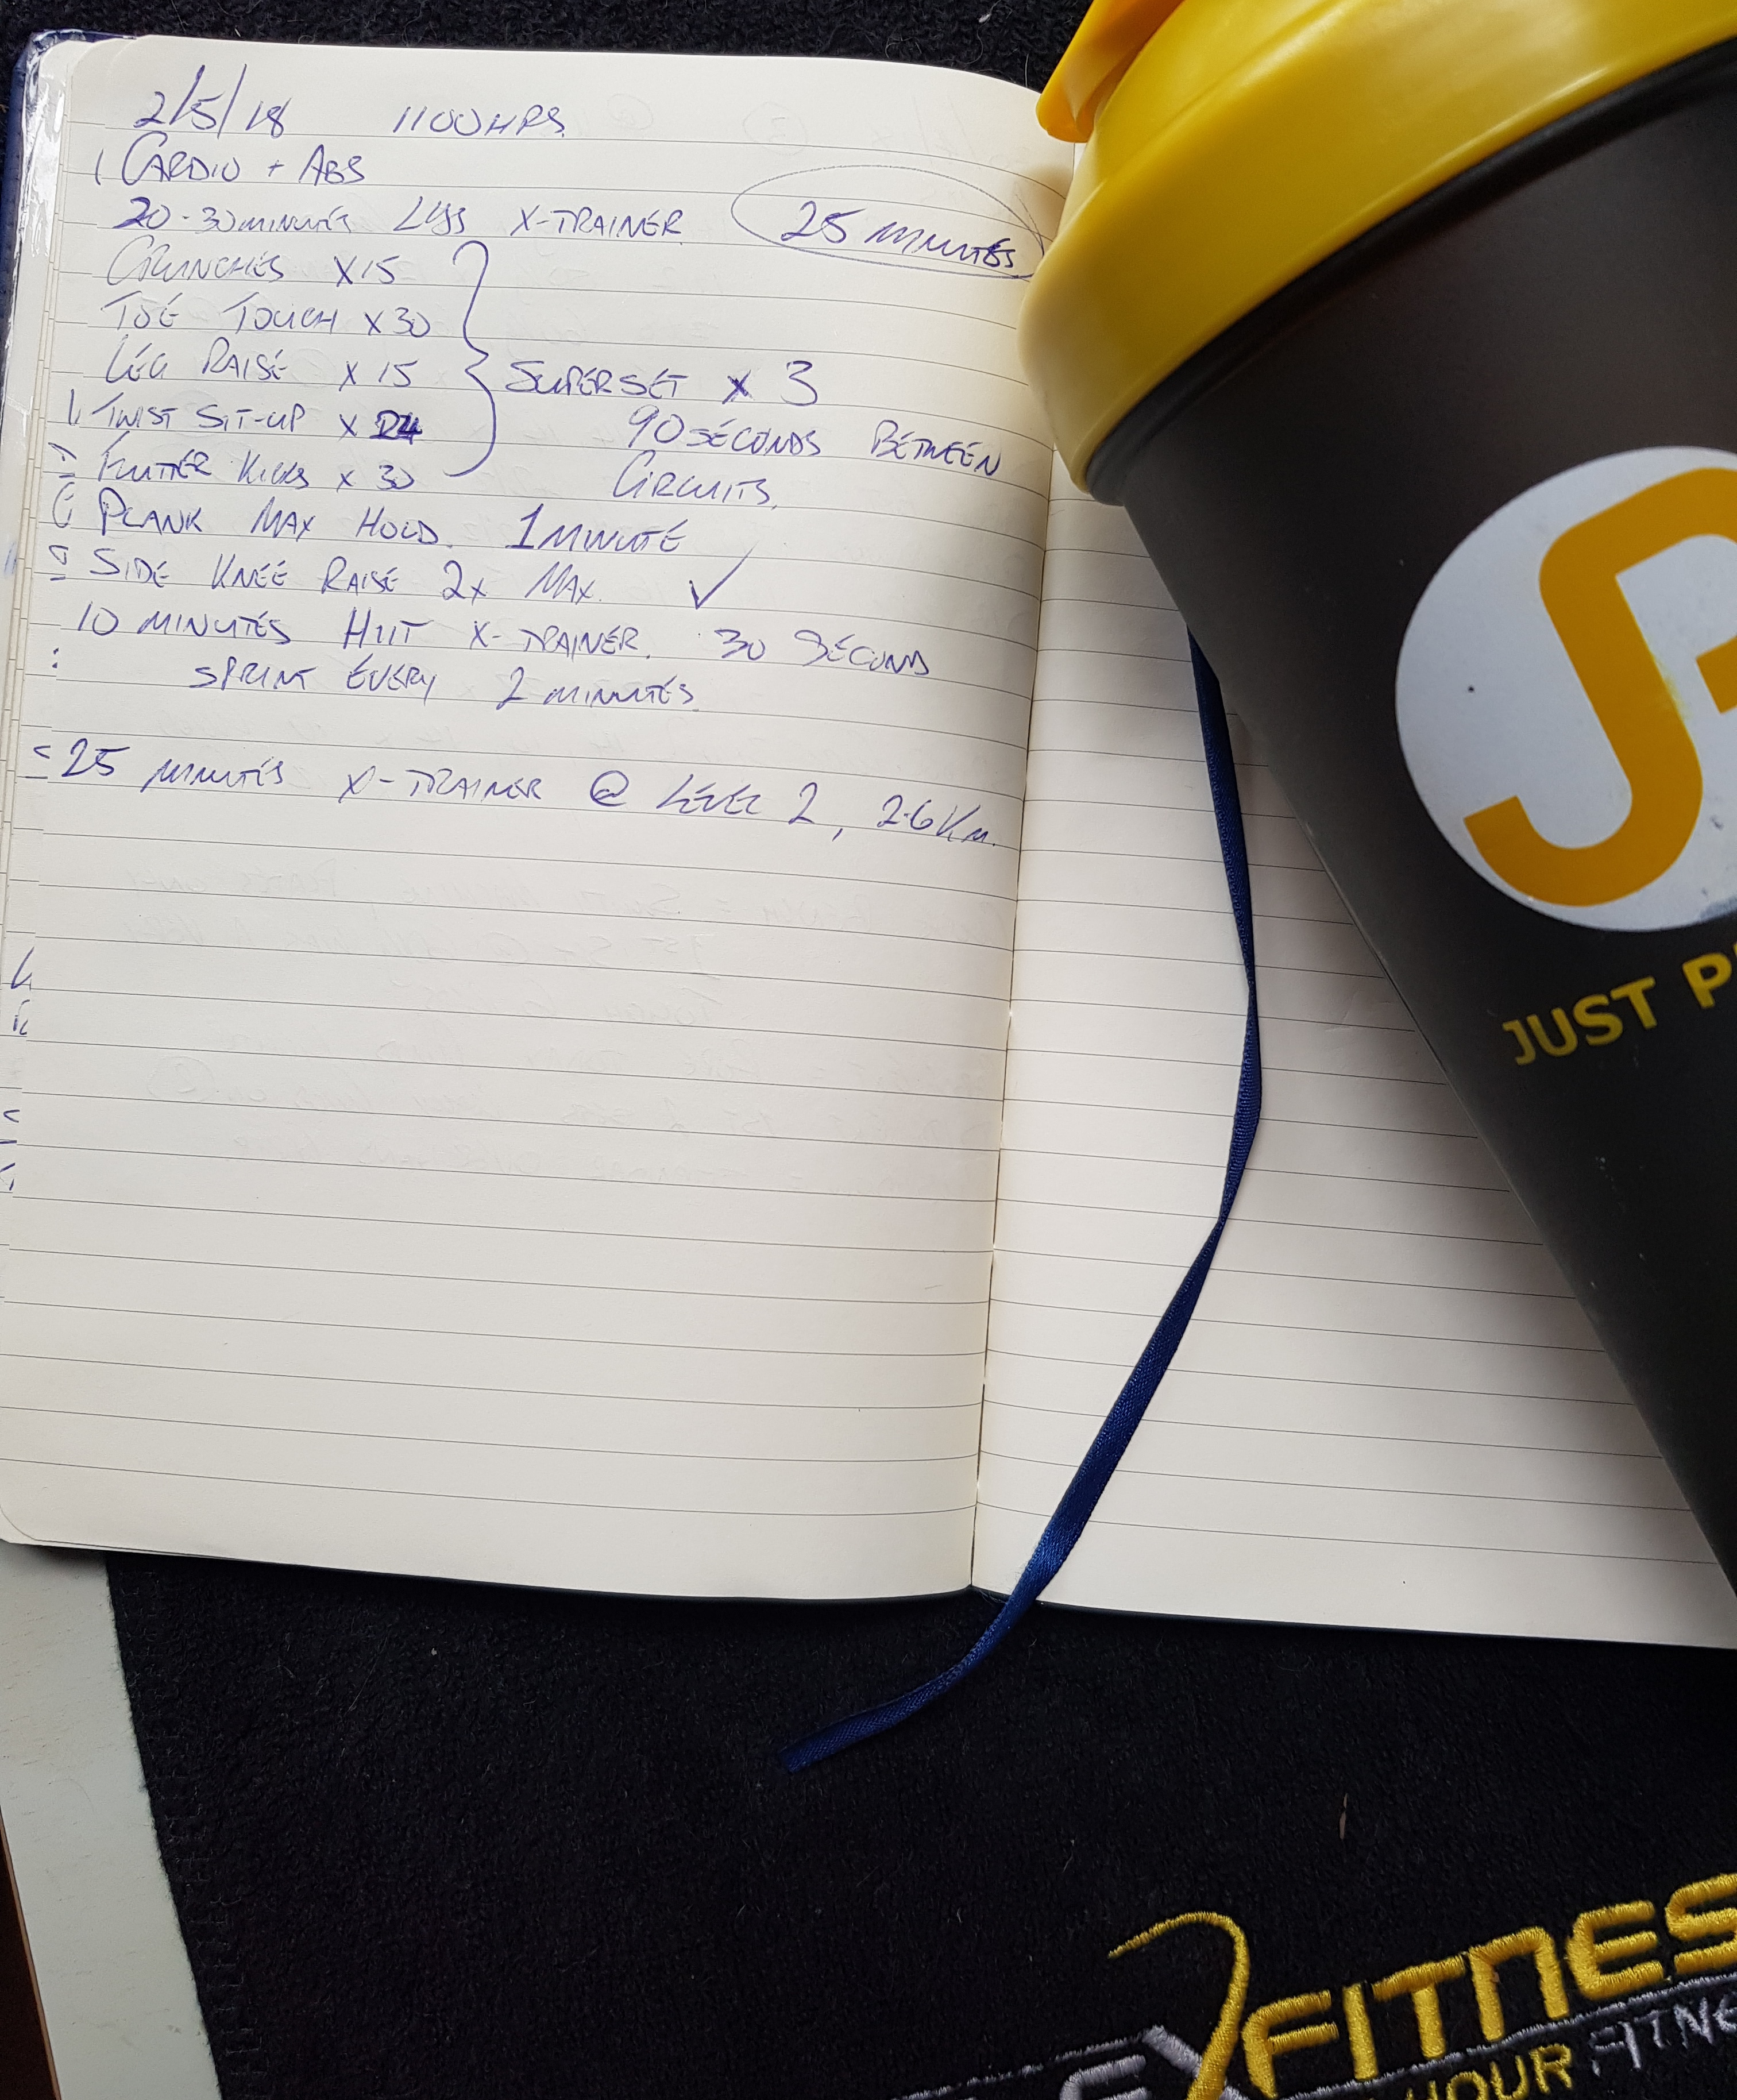 2/5/18 1100HRS
CARDIO + ABS
20-30 MINUTES LISS X-TRAINER 25 MINUTES
CRUNCHES X15
TOE TOUCH X30
LEG RAISE X15
SUPERSET X 3
TWIST SIT-UP X 24
90 SECONDS BETWEEN
FLUTTER KICKS X 30
CIRCUITS.
PLANK MAX HOLD. 1 MINUTE
SIDE KNEE RAISE 2X MAX. ✓
10 MINUTES HIIT X-TRAINER. 30 SECOND
SPRINT EVERY 2 MINUTES.
25 MINUTES X-TRAINER @ LEVEL 2, 2.6KM.
JP
JUST P
FITNES
HOUR FITNE